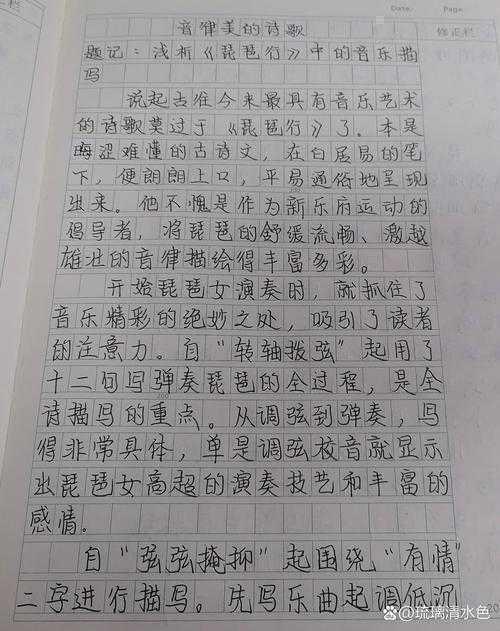 Date. Page.
音律美的诗歌
修正栏
题记：浅析《琵琶行》中的音乐描
写
说起古往今来最具有音乐艺术
的诗歌莫过于《琵琶行》了。本是
晦涩难懂的古诗文，在白居易的笔
下，便朗朗上口，平易通俗地呈现
出来。他不愧是作为新乐府运动的
倡导者，将琵琶的舒缓流畅、激越
雄壮的音律描绘得丰富多彩。
开始琵琶女演奏时，就抓住了
音乐精彩的绝妙之处，吸引了读者
的注意力。自“转轴拨弦”起用了
十二句写弹奏琵琶的全过程，是全
诗描写的重点。从调弦到弹奏，写
得非常具体，单是调弦校音就显示
出琵琶女高超的演奏技艺和丰富的
感情。
自“弦弦掩抑”起围绕“有情”
二字进行描写。先写乐曲起调低沉
@琉璃清水色